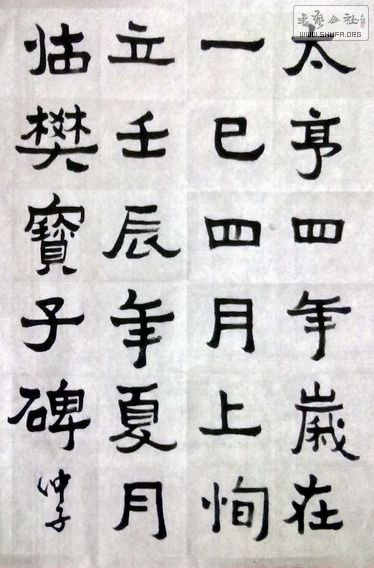 太亨四年歲在
一巳四月上恂
立壬辰年夏月
临樊寶子碑
仲子
書藝公社
WWW.SHUFA.ORG